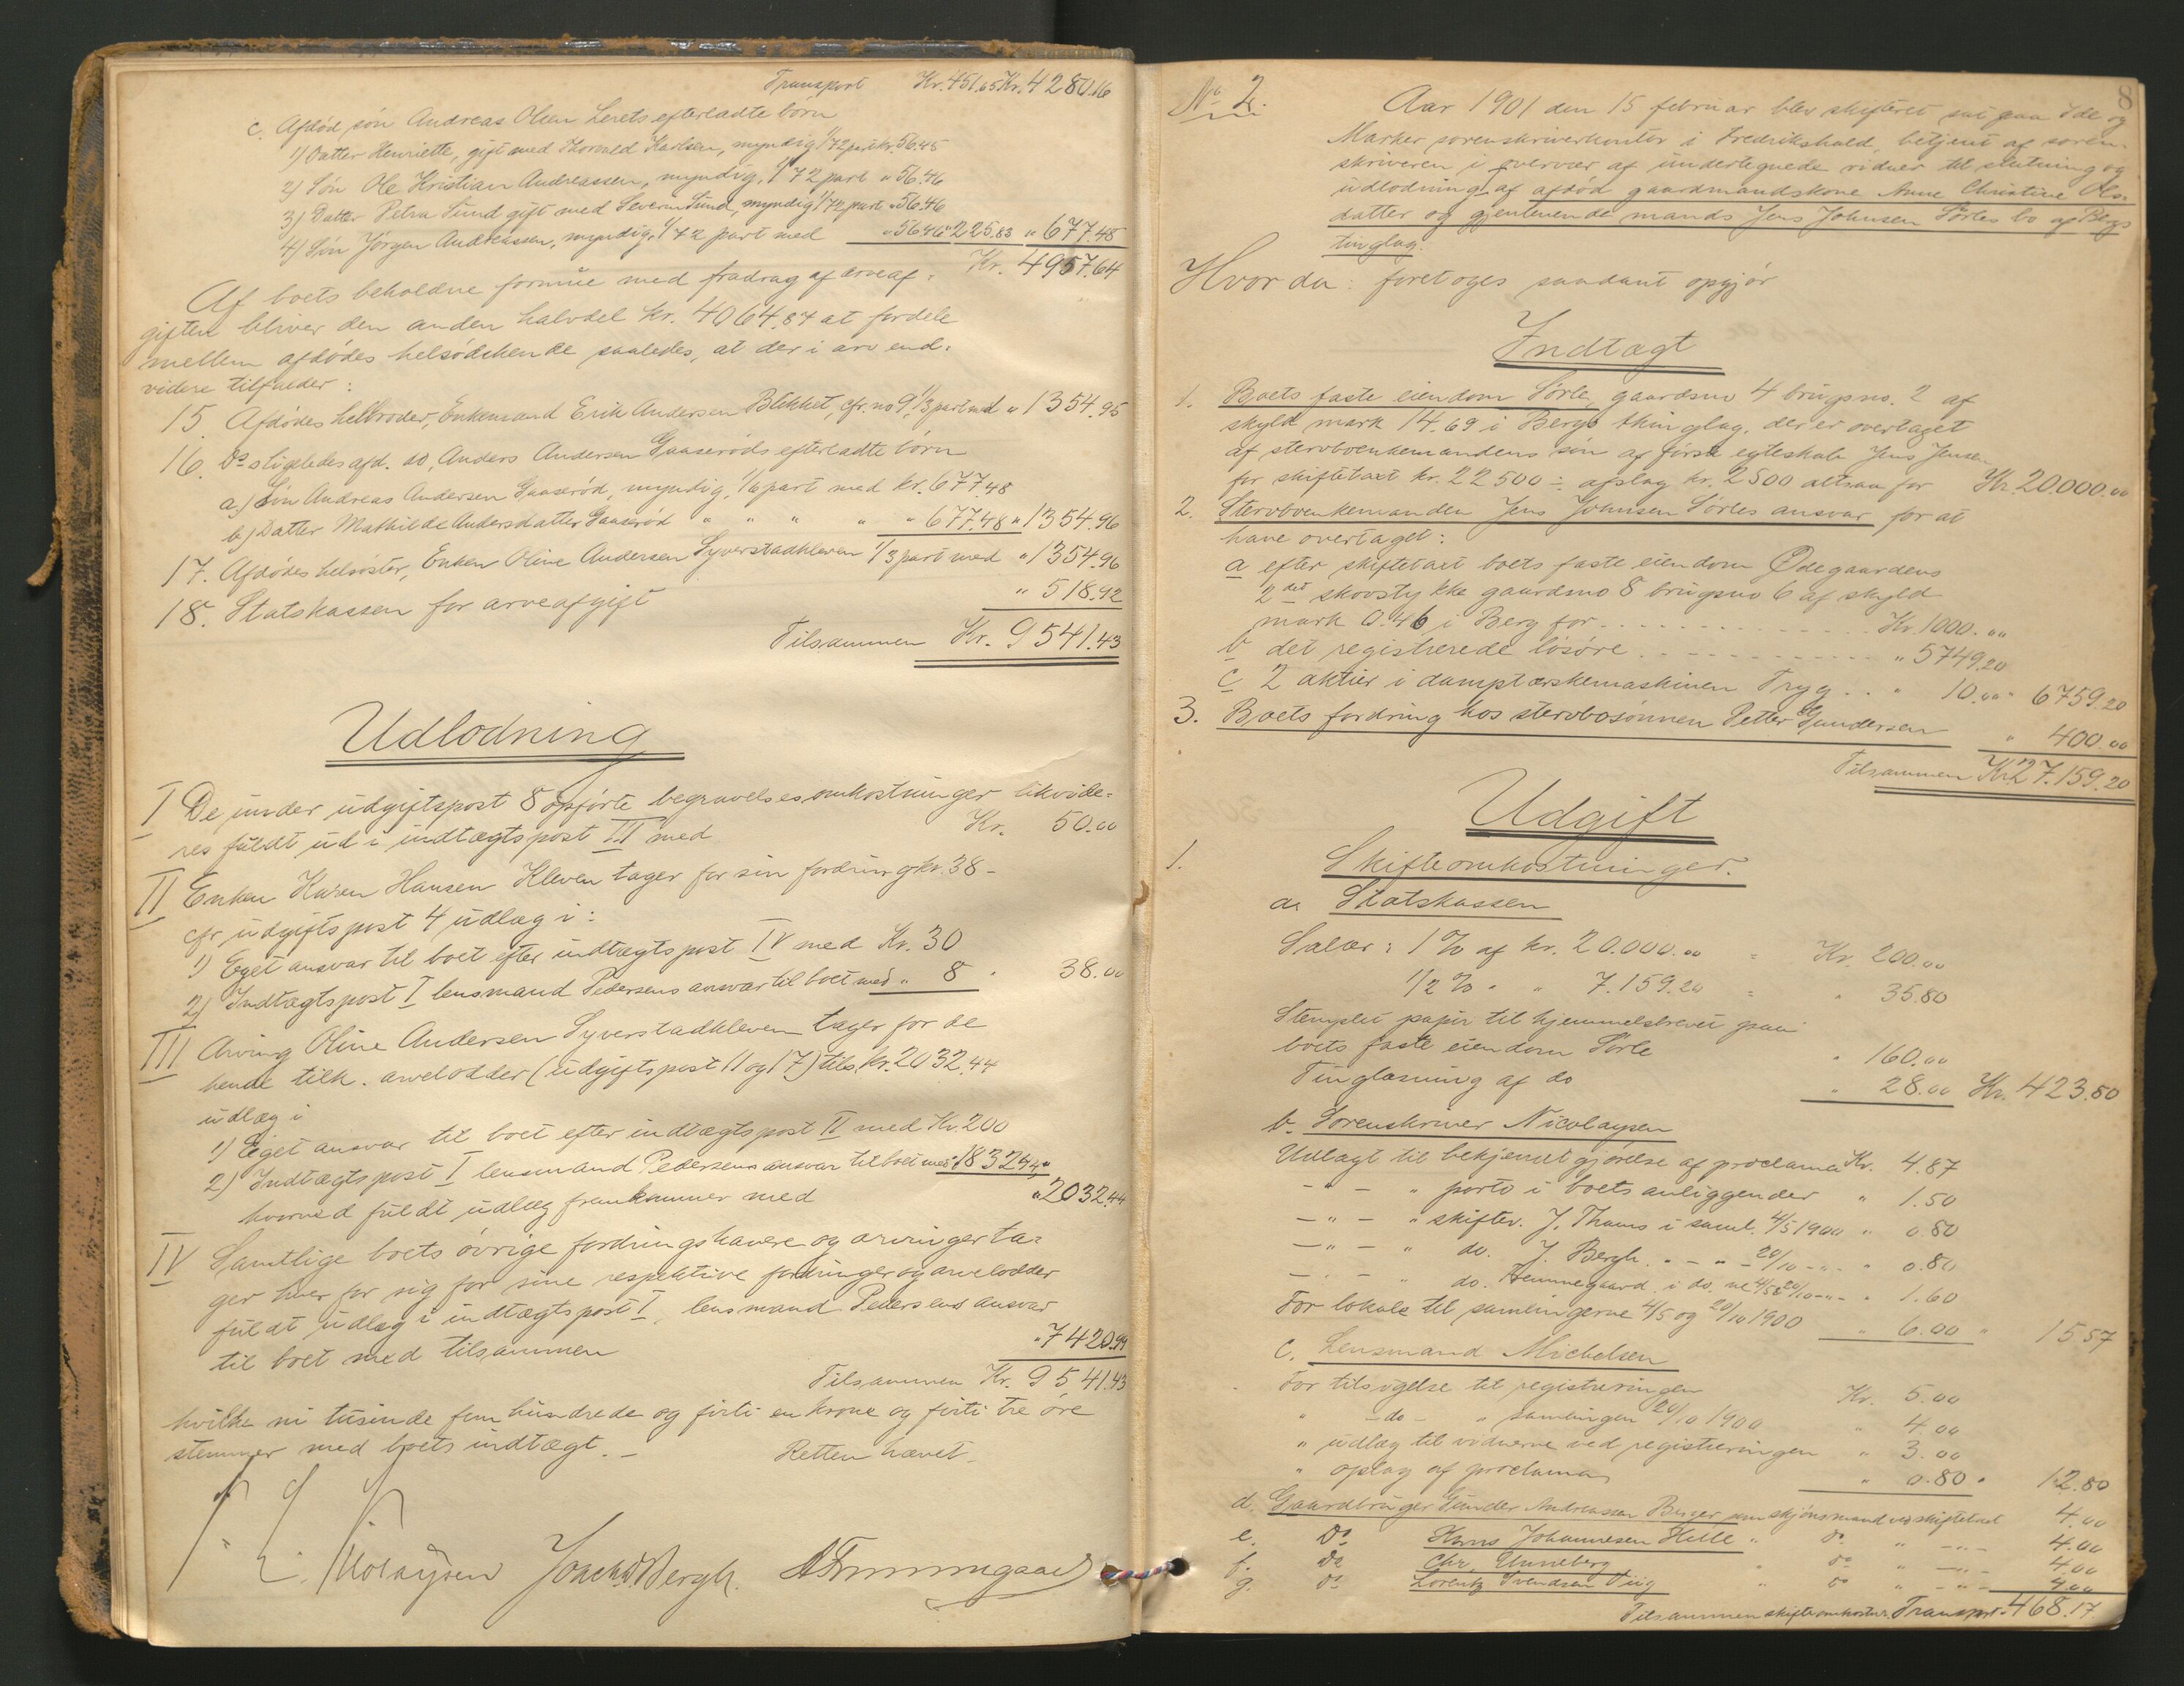 Transport Kr. 451.65 Kr. 4280.16
c. Afdød søn Andreas Olsen Lerets efterladte børn
1) Datter Henriette, gift med Thorvald Karlsen, myndig 1/72 part kr. 56.45
2) Søn Ole Kristian Andreassen, myndig, 1/72 part " 56.46
3) Datter Petra Lund gift med Severin Lund, myndig 1/72 part " 56.46
4) Søn Jørgen Andreassen, myndig, 1/72 part med " 56.46 " 225.83 " 677.48
Kr. 4957.64
Af boets beholdne formue med fradrag af arveaf-
giften bliver den anden halvdel kr. 4064.87 at fordele
mellem afdødes helsødskende saaledes, at der i arv end-
videre tilfalder:
15. Afdødes helbroder, Enkemand Erik Andersen Blikket, cfr. no 9, 1/3 part med " 1354.95
16. Do sligeledes afd. do, Anders Andersen Gaaserøds efterladte børn
a) Søn Andreas Andersen Gaaserød, myndig, 1/6 part med kr. 677.48
b) Datter Mathilde Andersdatter Gaaserød " " " " " 677.48 " 1354.96
17. Afdødes helsøster, Enken Oline Andersen Syverstadkleven 1/3 part med " 1354.96
18. Statskassen for arveafgift " 518.92
Tilsammen Kr. 9541.43
Udlodning
I De under udgiftspost 8 opførte begravelsesomkostninger likvide-
res fuldt ud i indtægtspost III med Kr. 50.00
II Enken Karen Hansen Kleven tager for sin fordring kr. 38 -
cfr udgiftspost 4 udlæg i:
1) Eget ansvar til boet efter indtægtspost IV med Kr. 30
2) Indtægtspost I lensmand Pedersens ansvar til boet med " 8 " 38.00
III Arving Oline Andersen Syverstadkleven tager for de
hende tilk. arvelodder (udgiftspost 11 og 17) tils. kr. 2032.44
udlæg i
1) Eget ansvar til boet efter indtægtspost II med Kr. 200
2) Indtægtspost I lensmand Pedersens ansvar til boet med " 1832.44
hvorved fuldt udlæg fremkommer med " 2032.44
IV Samtlige boets øvrige fordringshavere og arvinger ta-
ger hver for sig for sine respektive fordringer og arvelodder
fuldt udlæg i indtægtspost I, lensmand Pedersens ansvar
til boet med tilsammen " 7420.99
Tilsammen Kr. 9541.43
hvilke ni tusinde fem hundrede og førti en krone og førti tre øre
stemmer med boets indtægt. - Retten hævet.
Nicolaysen Joach. Bergh.
8
No 2. Aar 1901 den 15 februar blev skifteret sat paa Idd og
Marker sorenskriverkontor i Fredrikshald, betjent af soren-
skriveren i overvær af undertegnede vidner til slutning og
udlodning af afdød gaardmandskone Anne Christine Ols-
datter og gjenlevende mands Jens Johnsen Sørles bo af Bergs
tinglag.
Hvor da: foretoges saadant opgjør
Indtægt
1. Boets faste eiendom Sørle, gaardsno 4 brugsno. 2 af
skyld mark 14.69 i Bergs thinglag, der er overtaget
af stervboenkemandens søn af første egteskab Jens Jensen
for skiftetaxt kr. 22500 ÷ afslag kr. 2500 altsaa for Kr. 20.000.00
2. Stervboenkemanden Jens Johnsen Sørles ansvar for at
have overtaget:
a efter skiftetaxt boets faste eiendom Ødegaardens
2det skovstykke gaardsno 8 brugsno 6 af skyld
mark 0.46 i Berg for Kr. 1000. ""
b det registrerede løsøre " 5749.20
c 2 aktier i damptærskemaskinen Tryg " 10.00 " 6759.20
3. Boets fordring hos stervbosønnen Petter Gundersen " 400.00
Tilsammen Kr. 27.159.20
Udgift
1. Skifteomkostninger.
a. Statskassen
Salær: 1 % af kr. 20.000.00 = Kr. 200.00
1/2 % " " 7.159.20 = " 35.80
Stemplet papir til hjemmelsbrevet paa
boets faste eiendom Sørle " 160.00
Tinglæsning af do " 28.00 Kr. 423.80
b. Sorenskriver Nicolaysen
Udlagt til bekjendtgjørelse af proclama Kr. 4.87
- " - " porto i boets anliggender " 1.50
- " - " skiftev. J. Thams i saml. 4/5 1900 " 0.80
- " - " do. J. Bergh. " - " - 20/10 - " - " 0.80
- " - " do. Fremmegaard i do. 4/5 & 20/10 - " - " 1.60
For lokale til samlingerne 4/5 og 20/10 1900 " 6.00 " 15.57
c. Lensmand Michelsen
For tilsigelse til registreringen Kr. 5.00
" - do - " samlingen 20/10 1900 " 4.00
" udlæg til vidnerne ved registreringen " 3.00
" opslag af proclama " 0.80 " 12.80
d. Gaardbruger Gunder Andreassen Berger som skjønsmand ved skiftetaxt 4.00
e. Do Hans Johannesen Helle " do " - " - 4.00
f. Do Chr. Unneberg " do " - " - 4.00
g. Do Lorentz Svendsen Viig " do " - " - 4.00
Tilsammen skifteomkostn. Transport 468.17